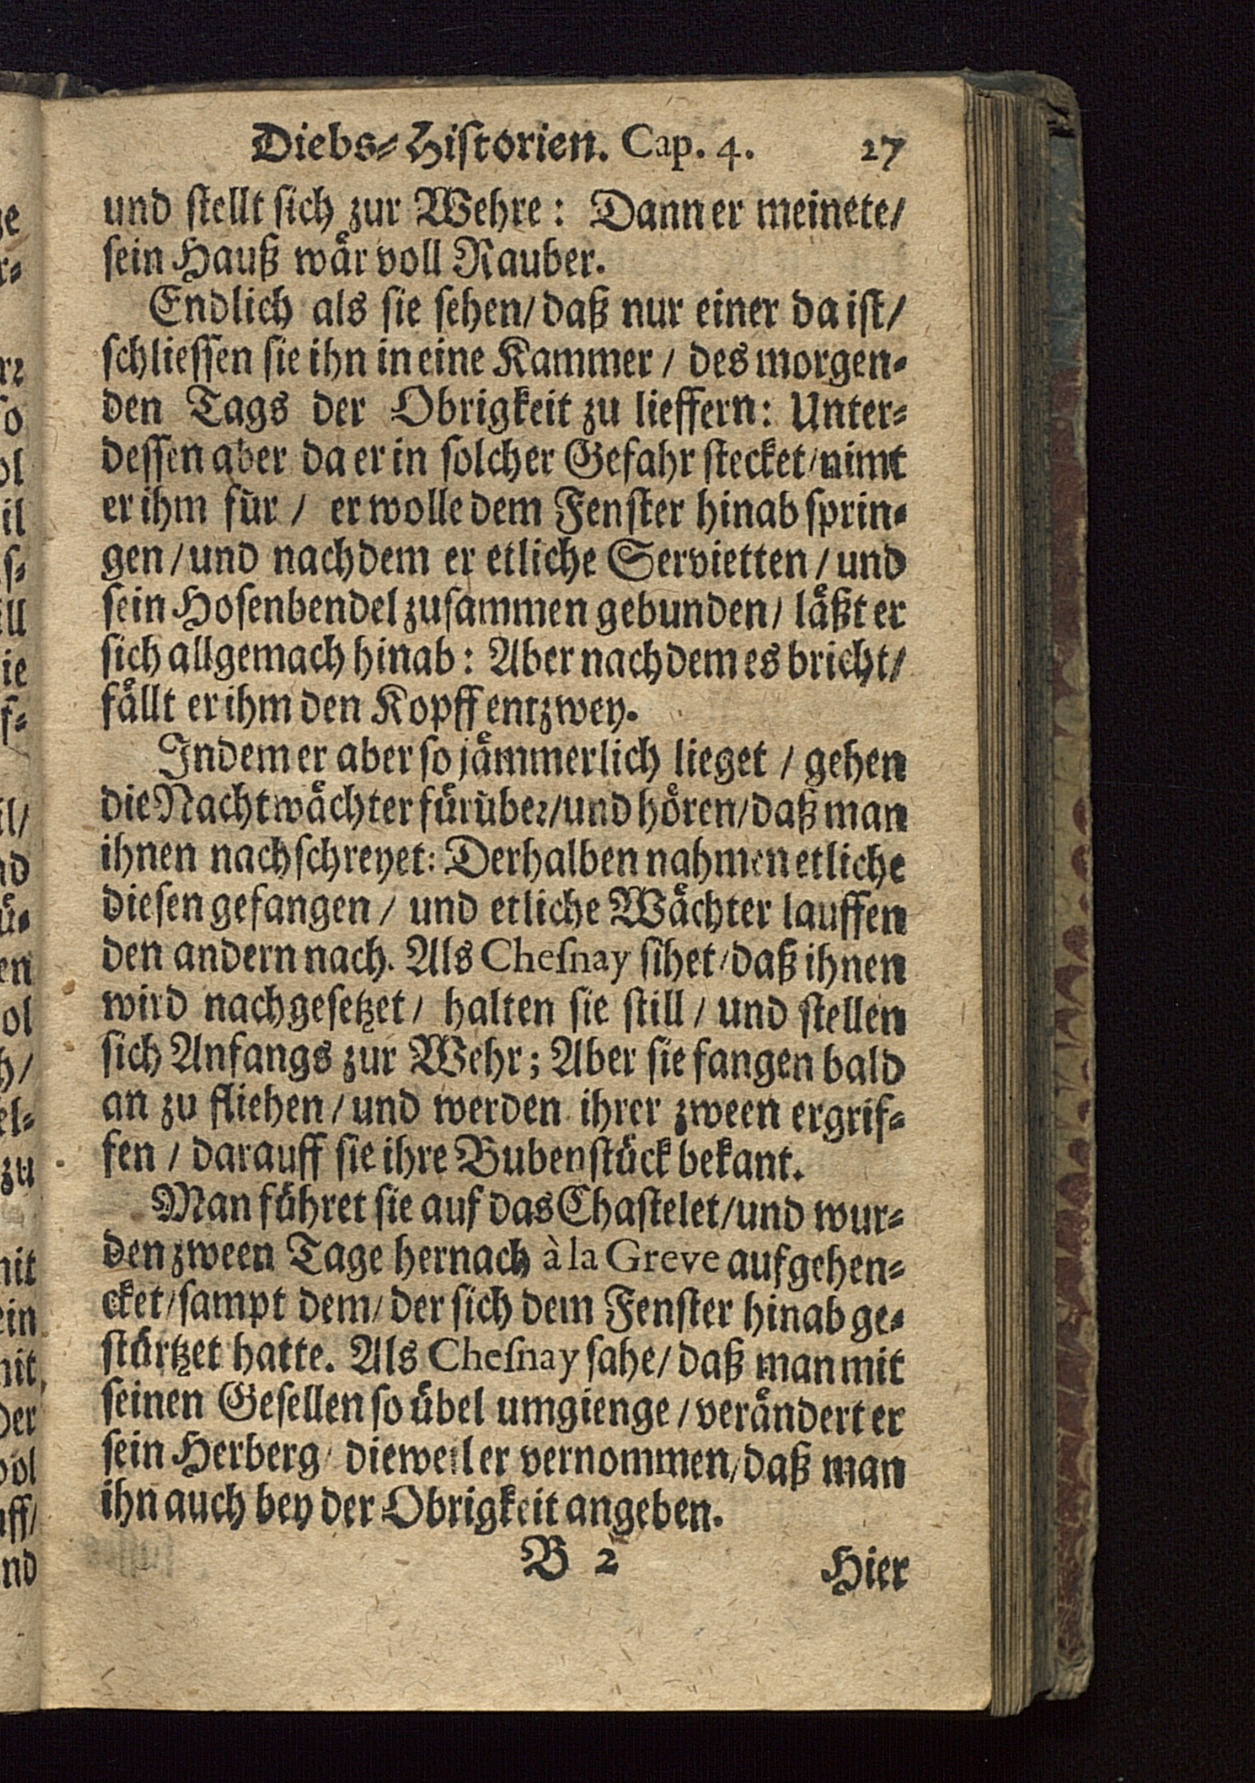 Diebs-Historien. Cap. 4. 27
und stellt sich zur Wehre: Dann er meinete/
sein Hauß wär voll Rauber.
Endlich als sie sehen/ daß nur einer da ist/
schliessen sie ihn in eine Kammer / des morgen-
den Tags der Obrigkeit zu lieffern: Unter-
dessen aber da er in solcher Gefahr stecket/ nimt
er ihm für / er wolle dem Fenster hinab sprin-
gen / und nachdem er etliche Servietten / und
sein Hosenbendel zusammen gebunden/ läßt er
sich allgemach hinab: Aber nachdem es bricht/
fällt er ihm den Kopff entzwey.
Indem er aber so jämmerlich lieget / gehen
die Nachtwächter fürüber/ und hören/ daß man
ihnen nachschreyet: Derhalben nahmen etliche
diesen gefangen / und etliche Wächter lauffen
den andern nach. Als Chesnay sihet/ daß ihnen
wird nachgesetzet/ halten sie still / und stellen
sich Anfangs zur Wehr; Aber sie fangen bald
an zu fliehen / und werden ihrer zween ergrif-
fen / darauff sie ihre Bubenstück bekant.
Man führet sie auf das Chastelet/ und wur-
den zween Tage hernach à la Greve aufgehen-
cket/ sampt dem/ der sich dem Fenster hinab ge-
stürtzet hatte. Als Chesnay sahe/ daß man mit
seinen Gesellen so übel umgienge / verändert er
sein Herberg/ dieweil er vernommen/ daß man
ihn auch bey der Obrigkeit angeben.
B 2 Hier